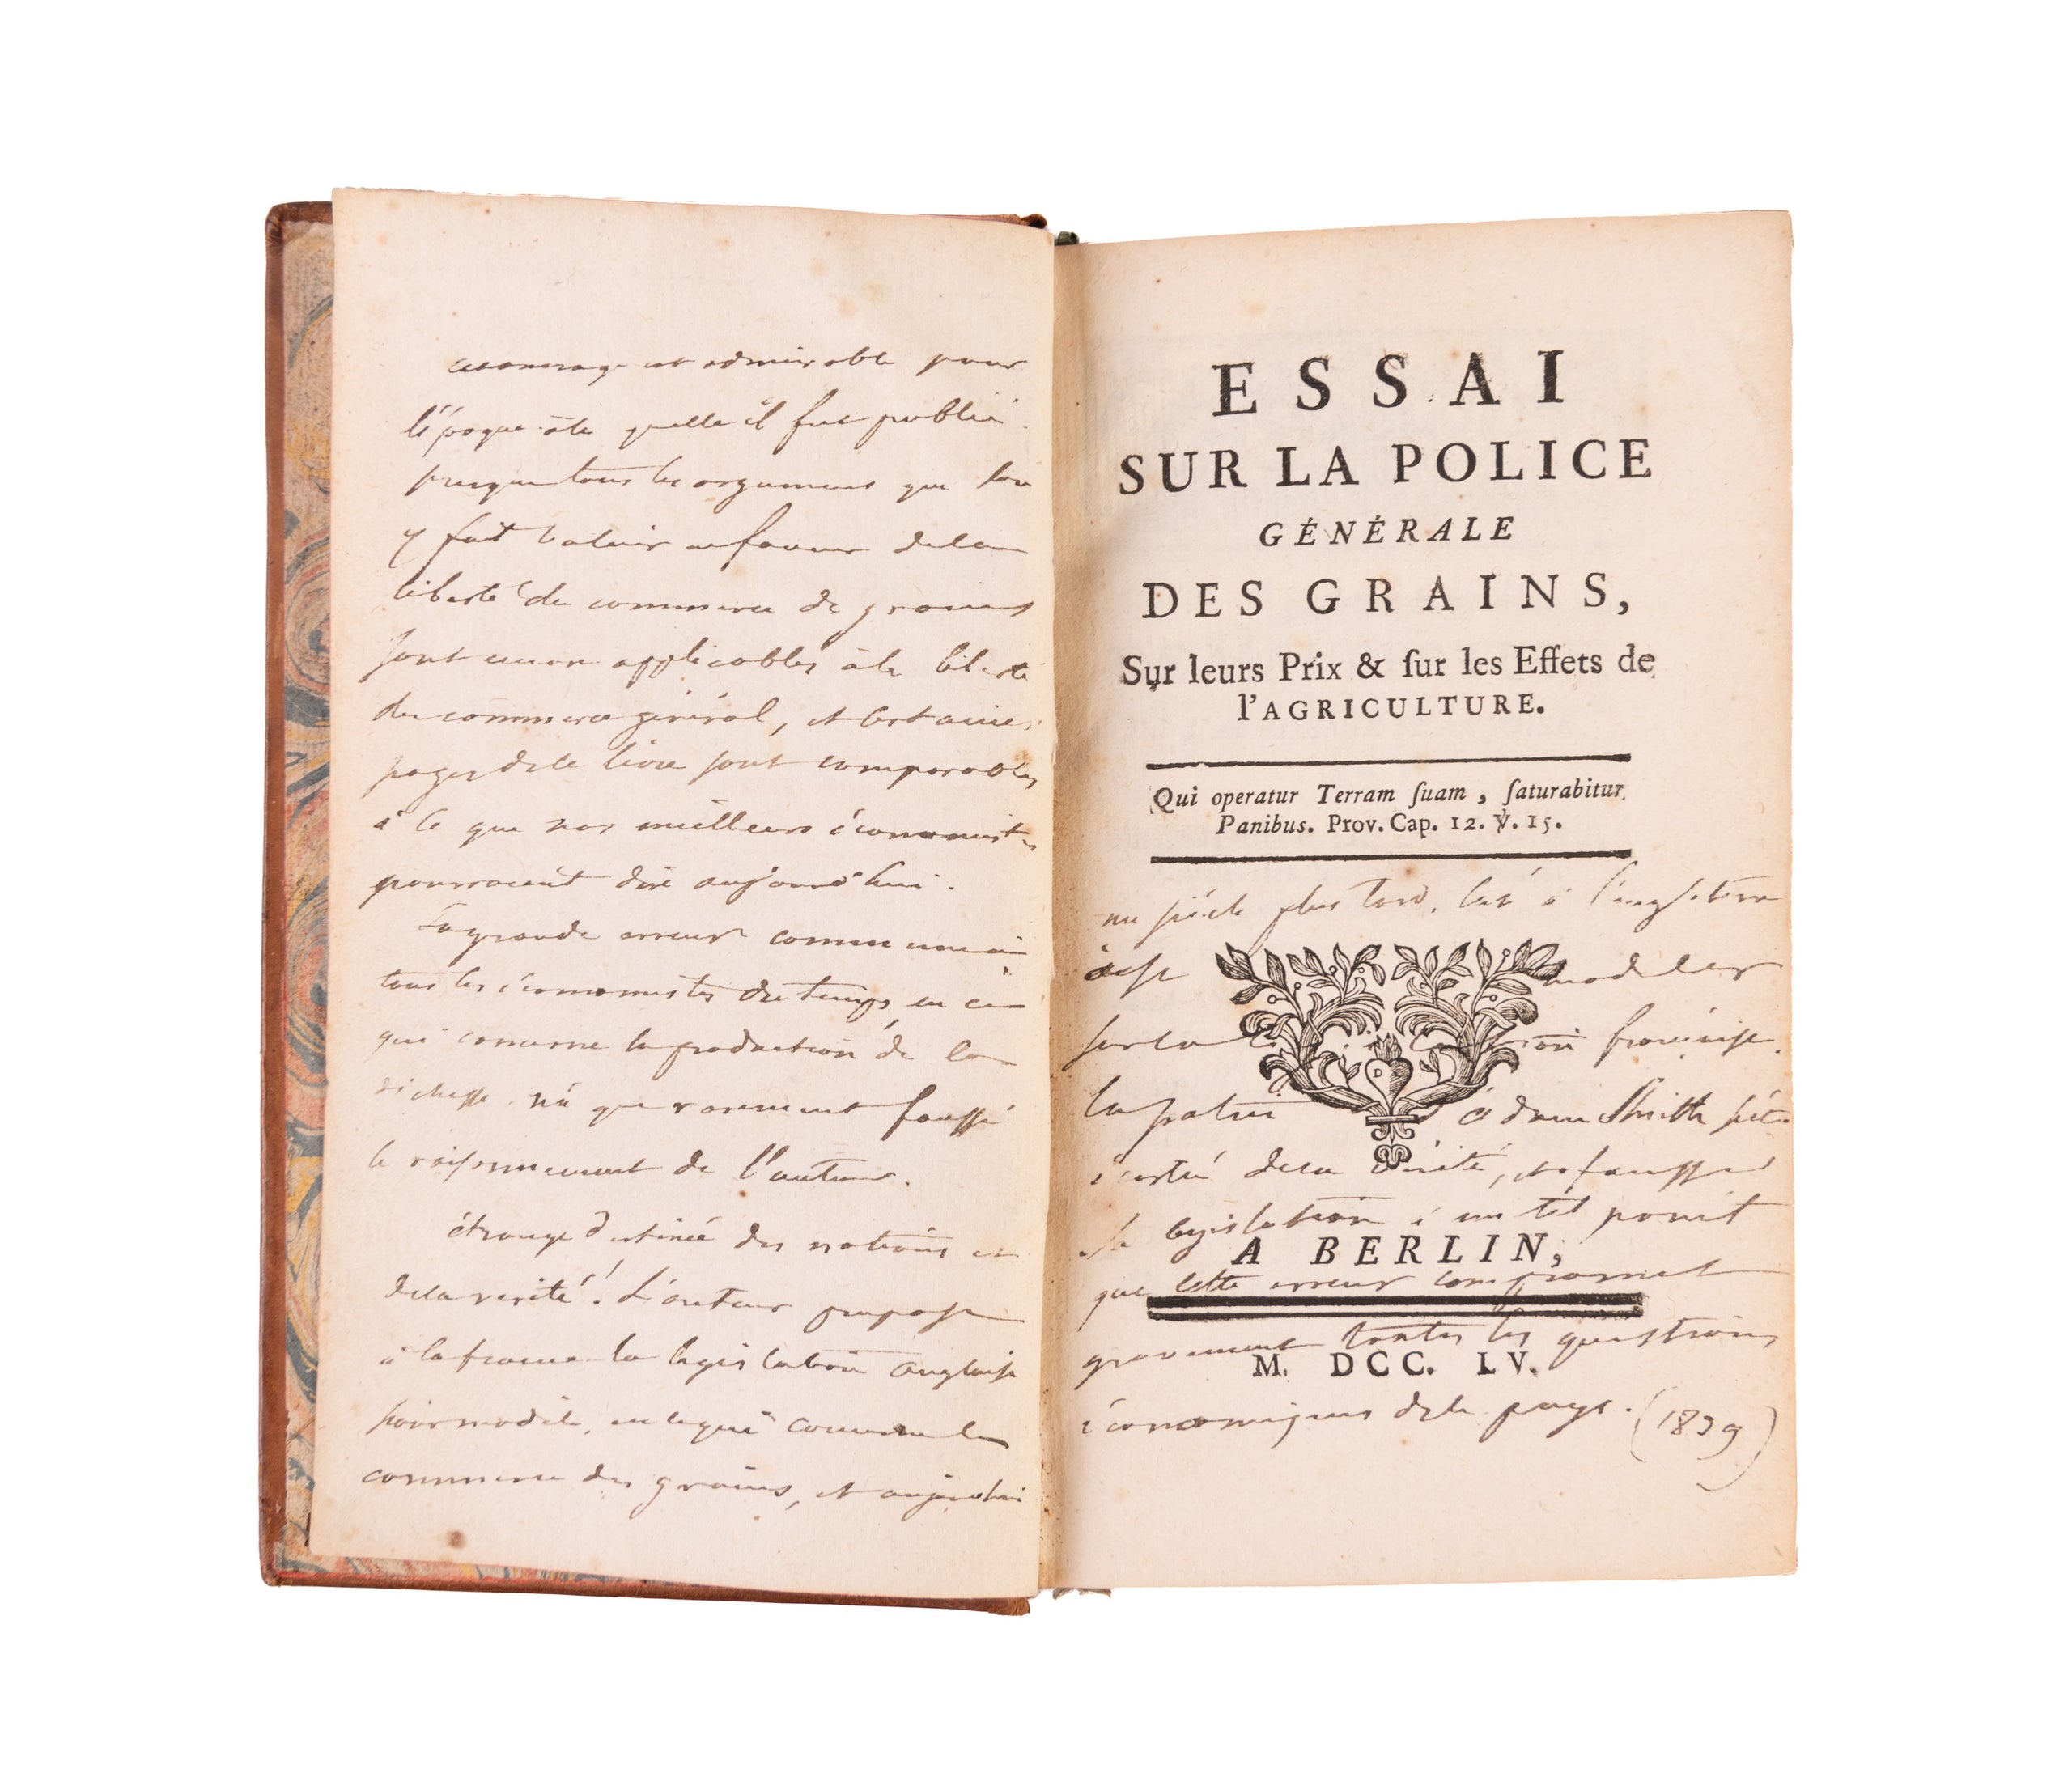 cet ouvrage est admirable pour
l'époque à la quelle il fut publié.
presque tous les argumens que l'on
y fait valoir en faveur de la
liberté du commerce de grains
sont encore applicables à la liberté
du commerce général, et certaines
pages de ce livre sont comparables
à ce que nos meilleurs économistes
pourroient dire aujourd'hui.
La grande erreur commune à
tous les économistes du temps, en ce
qui concerne la production de la
richesse, n'a que rarement faussé
le raisonnement de l'auteur.
étrange destinée des nations et
de la verité! L'auteur propose
à la france la législation anglaise
pour modèle, en ce qui concerne le
commerce des grains, et aujourdhui
ESSAI
SUR LA POLICE
GÉNÉRALE
DES GRAINS,
Sur leurs Prix & ſur les Effets de
l'AGRICULTURE.
Qui operatur Terram ſuam, ſaturabitur
Panibus. Prov. Cap. 12. V. 15.
un siécle plus tard, c'est à l'angleterre
à se modeler
sur la française.
la patrie d'adam Smith s'est
écartée de la vérité, et a faussé
sa législation à un tel point
A BERLIN,
que cette erreur compromet
gravement toutes les questions
M. DCC. LV.
économiques de ce pays. (1839)